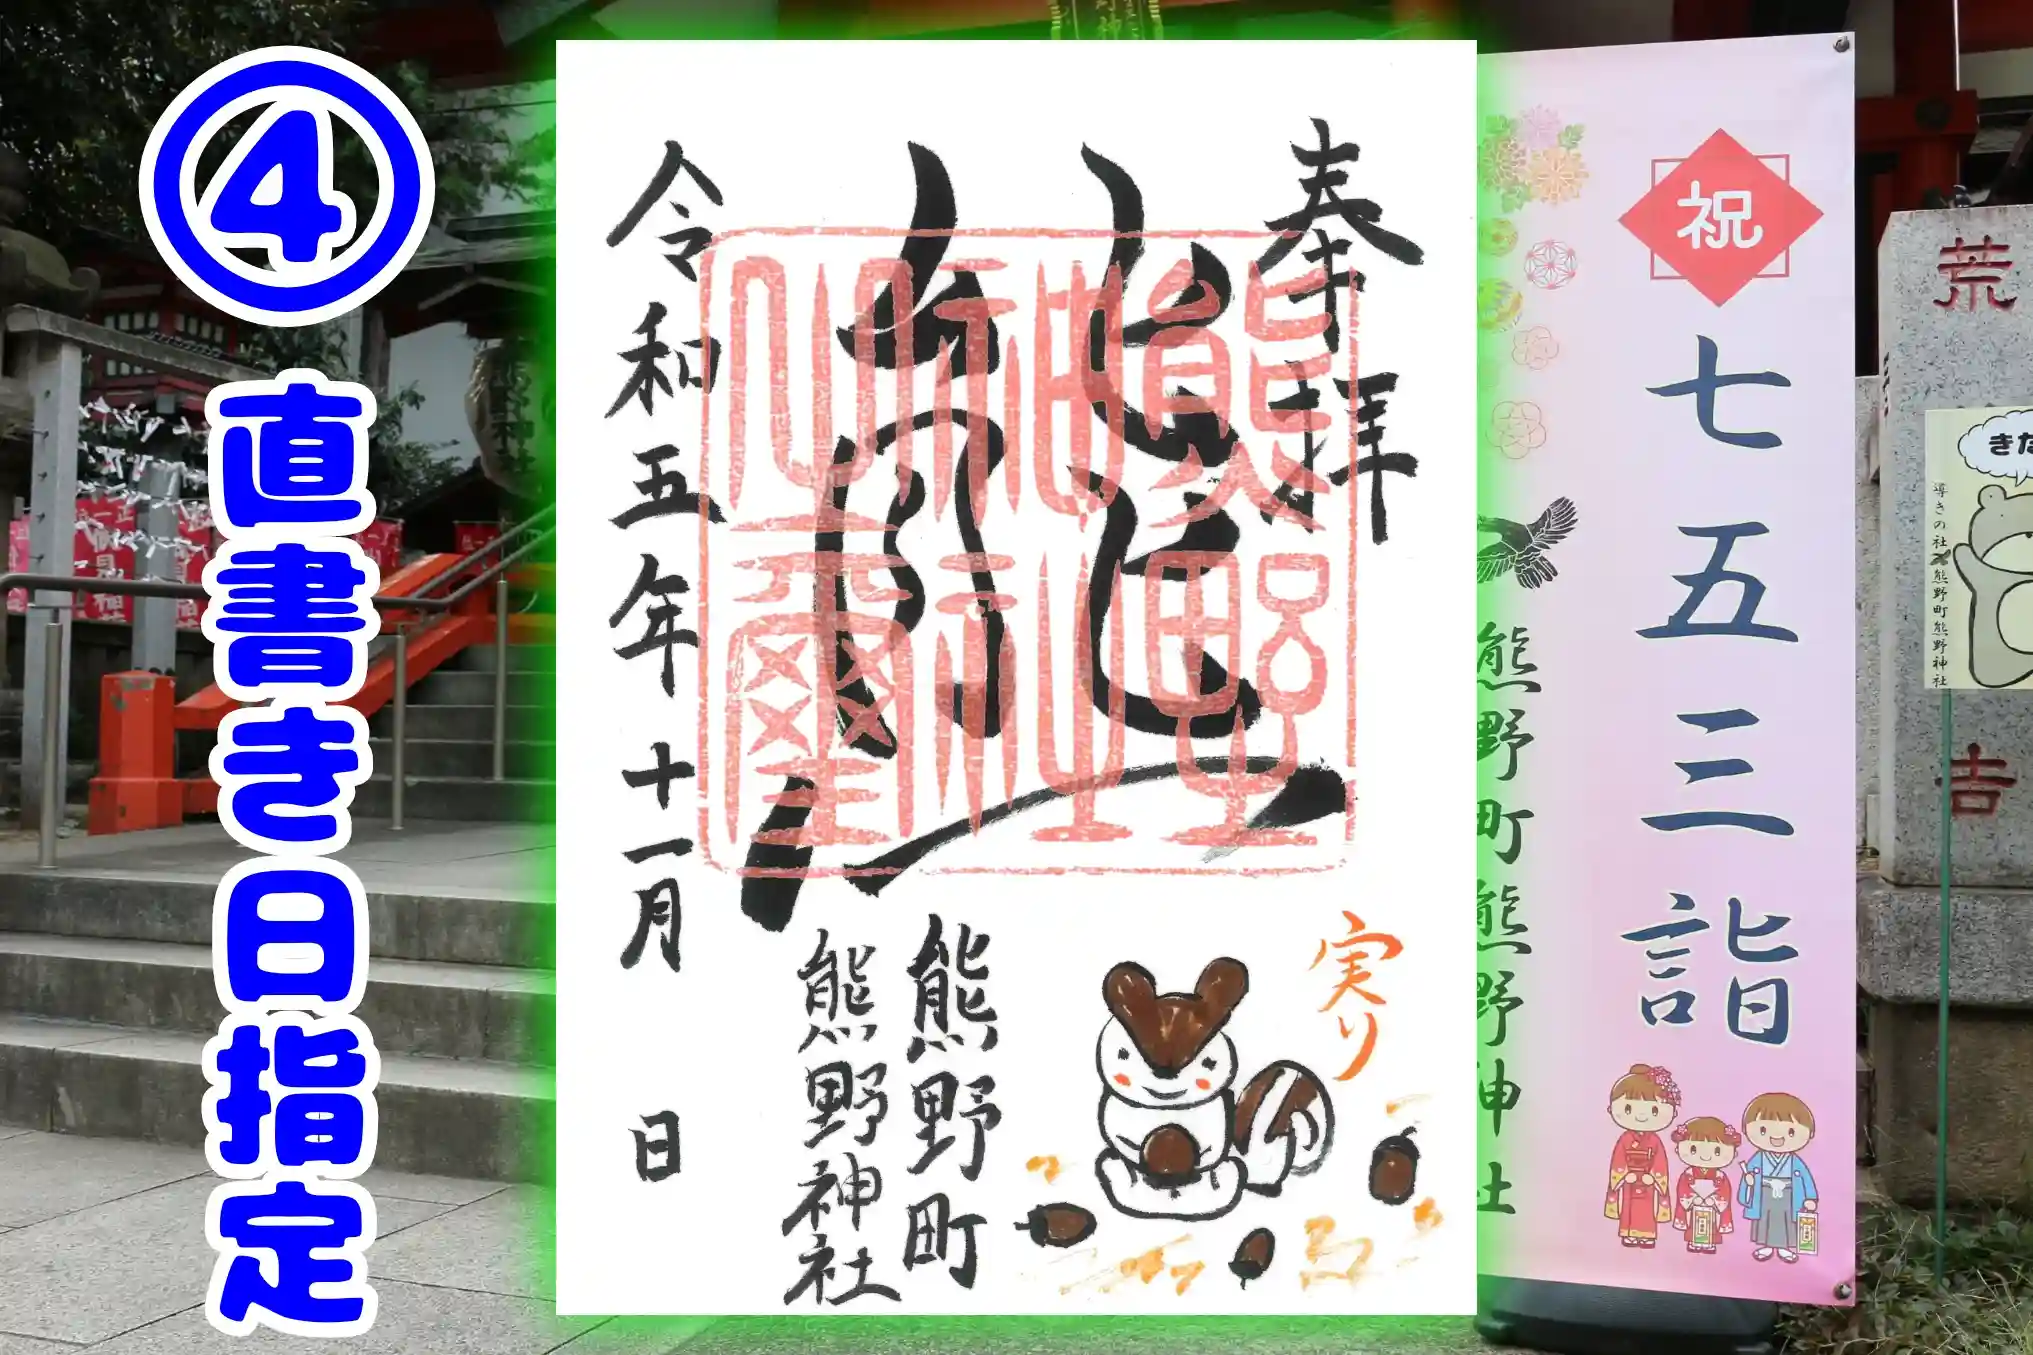 ④
直書き日指定
奉拝
令和五年十一月 日
熊野町
熊野神社
実り
熊野神社之璽
祝
七五三詣
熊野町熊野神社
荒
吉
きた
導きの社 熊野町熊野神社